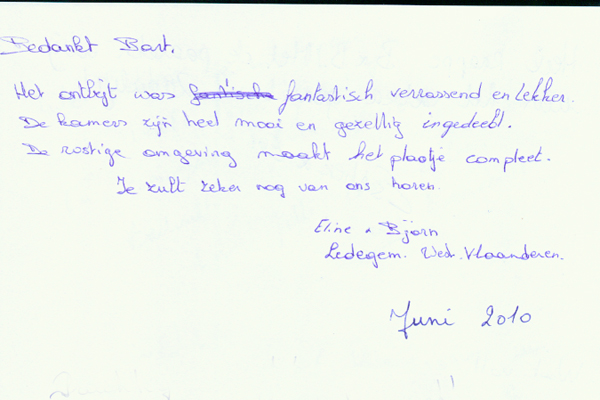 Bedankt Bart.
Het ontbijt was fantastisch verrassend en lekker.
De kamers zijn heel mooi en gezellig ingedeeld.
De rustige omgeving maakt het plaatje compleet.
Je zult zeker nog van ons horen
Eline & Bjorn
Ledegem. West-Vlaanderen.
Juni 2010